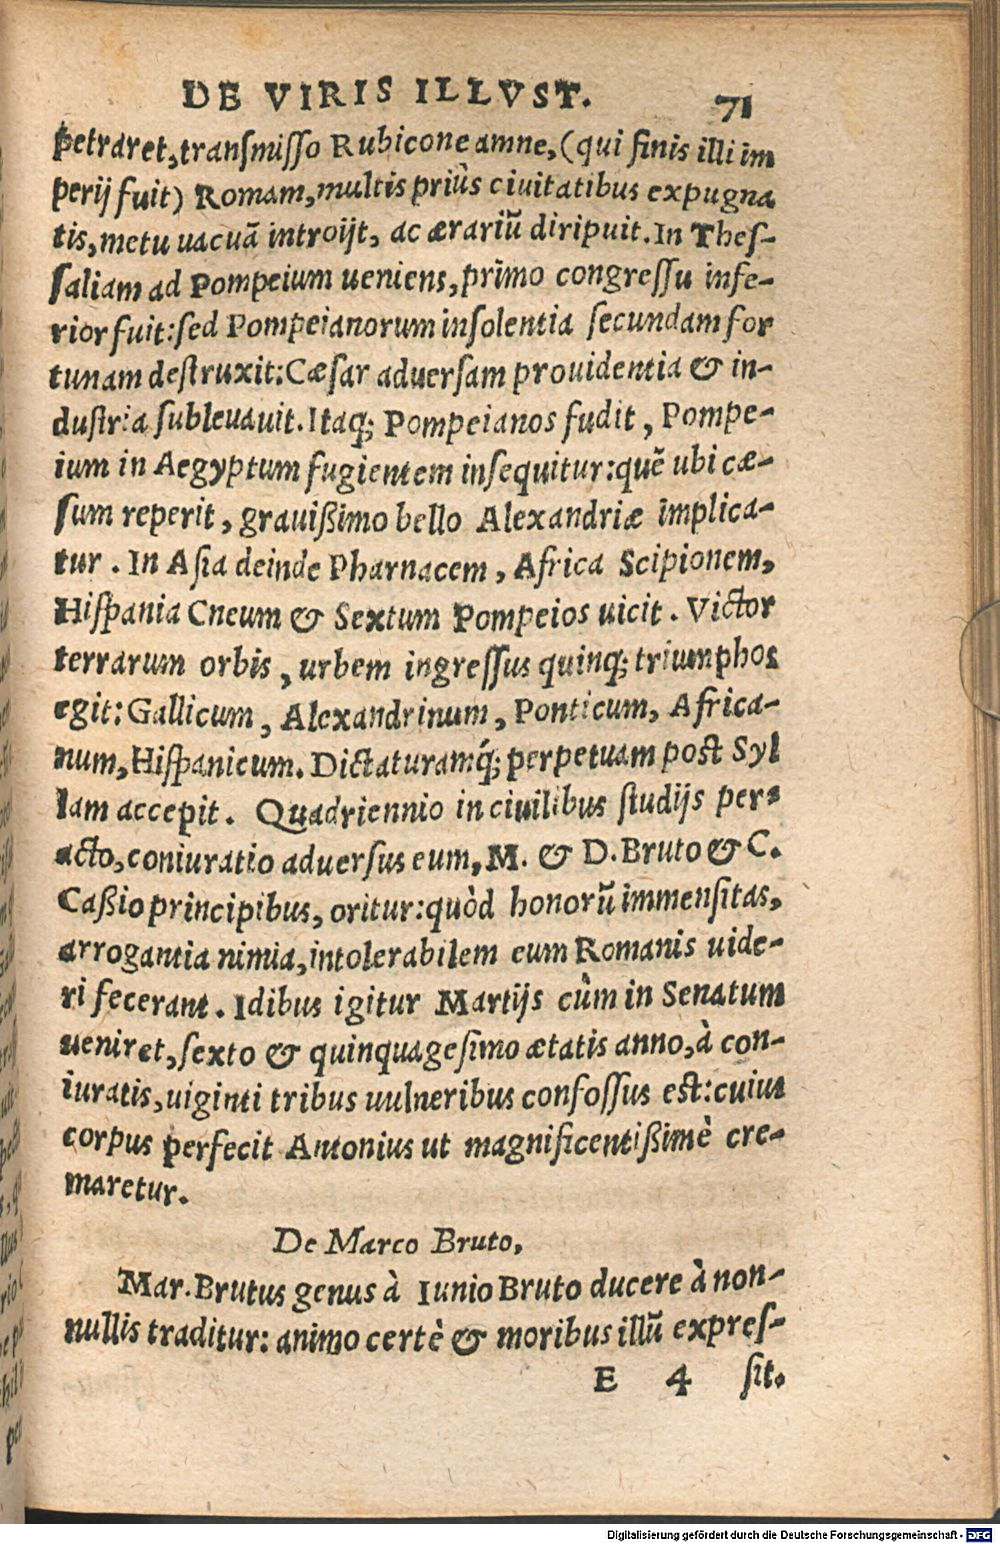 DE VIRIS ILLVST. 71
petraret, transmisso Rubicone amne, (qui finis illi im
perij fuit) Romam, multis priùs ciuitatibus expugna
tis, metu uacuã introijt, ac ærariũ diripuit. In Thes-
saliam ad Pompeium ueniens, primo congressu infe-
rior fuit: sed Pompeianorum insolentia secundam for
tunam destruxit: Cæsar aduersam prouidentia & in-
dustria subleuauit. Itaq; Pompeianos fudit, Pompe-
ium in Aegyptum fugientem insequitur: quẽ ubi cæ-
sum reperit, grauißimo bello Alexandriæ implica-
tur. In Asia deinde Pharnacem, Africa Scipionem,
Hispania Cneum & Sextum Pompeios uicit. Victor
terrarum orbis, urbem ingressus quinq; triumphos
egit: Gallicum, Alexandrinum, Ponticum, Africa-
num, Hispanicum. Dictaturamq́; perpetuam post Syl
lam accepit. Quadriennio in ciuilibus studijs per-
acto, coniuratio aduersus eum, M. & D. Bruto & C.
Caßio principibus, oritur: quòd honorũ immensitas,
arrogantia nimia, intolerabilem eum Romanis uide-
ri fecerant. Idibus igitur Martijs cùm in Senatum
ueniret, sexto & quinquagesimo ætatis anno, à con-
iuratis, uiginti tribus uulneribus confossus est: cuius
corpus perfecit Antonius ut magnificentißimè cre-
maretur.
De Marco Bruto,
Mar. Brutus genus à Iunio Bruto ducere à non-
nullis traditur: animo certè & moribus illũ expres-
E 4 sit.
Digitalisierung gefördert durch die Deutsche Forschungsgemeinschaft - DFG